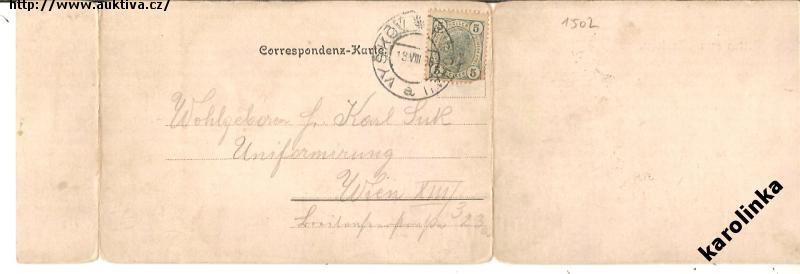 http://www.auktiva.cz/
1502
Correspondenz-Karte
VYŠKOV
a
5 5
Wohlgeboren H. Karl Suk
Uniformirung
Wien XIII/3
23
karolinka